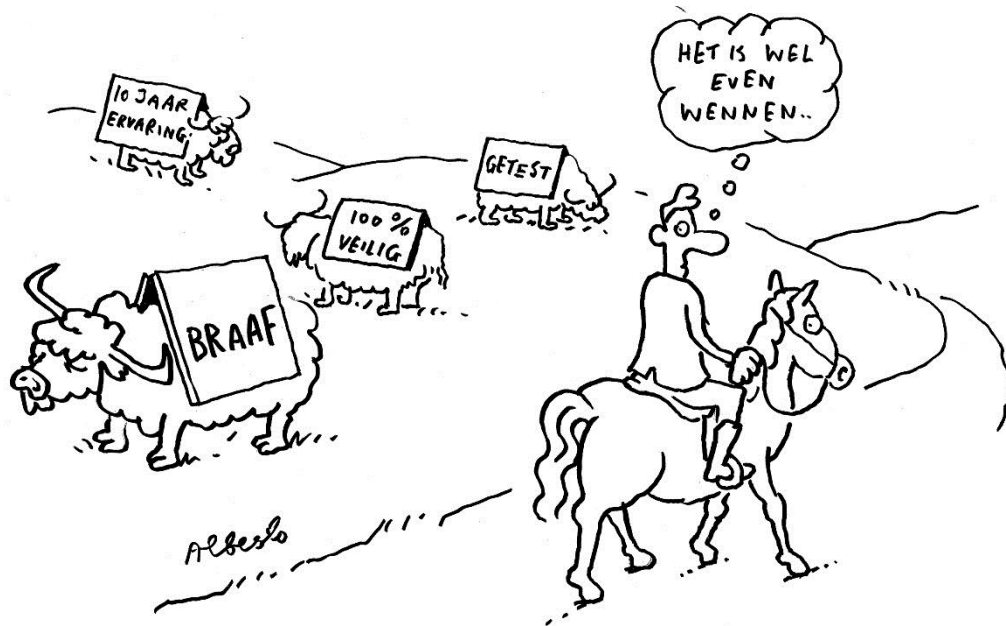 HET IS WEL
EVEN
WENNEN..
10 JAAR
ERVARING.
GETEST
100%
VEILIG
BRAAF